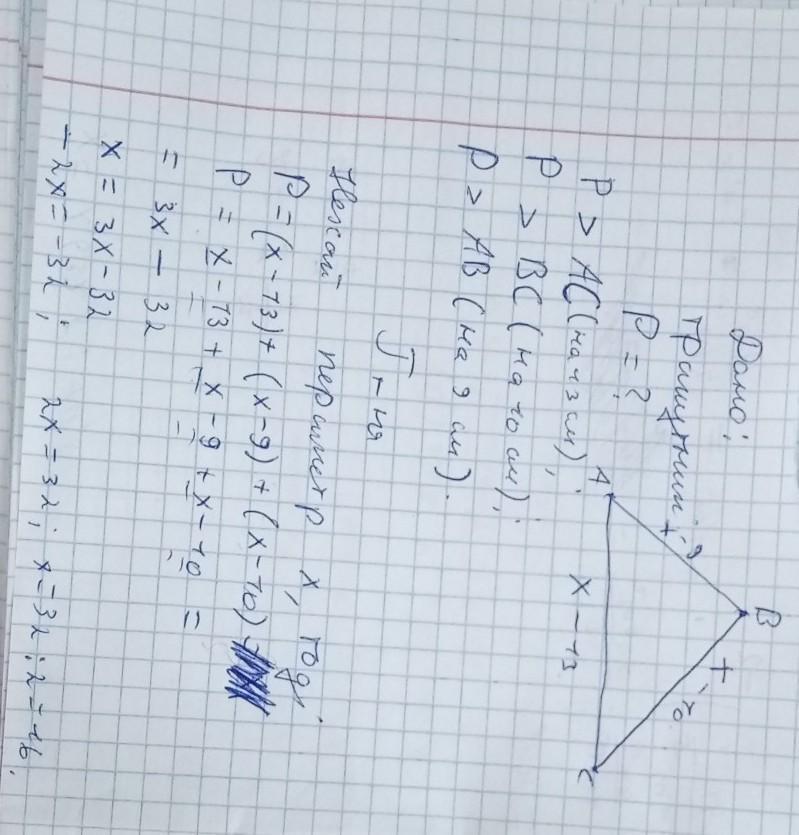 Дано:
трикутник
P = ?
P > AC (на 13 см);
P > BC (на 10 см);
P > AB (на 9 см).
A
B
C
x - 9
x - 10
x - 13
Нехай периметр x, тоді
P = (x - 13) + (x - 9) + (x - 10)
P = x - 13 + x - 9 + x - 10 =
= 3x - 32
x = 3x - 32
- 2x = -32; 2x = 32; x = 32 : 2 = 16.